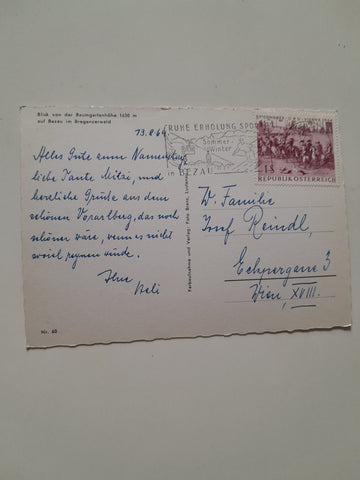 Blick von der Baumgartenhöhe 1630 m
auf Bezau im Bregenzerwald
13.8.64
RUHE ERHOLUNG SPORT
Sommer-
Winter
in BEZAU
1 S
REPUBLIK ÖSTERREICH
Alles Gute zum Namenstag,
liebe Tante Mitzi, und
herzliche Grüße aus dem
schönen Vorarlberg, das noch
schöner wäre, wenn es nicht
soviel regnen würde.
Ihre
Heli
Farbaufnahme und Verlag: Foto
W. Familie
Josef Reindl,
3
Wien, XVIII.
Nr. 60